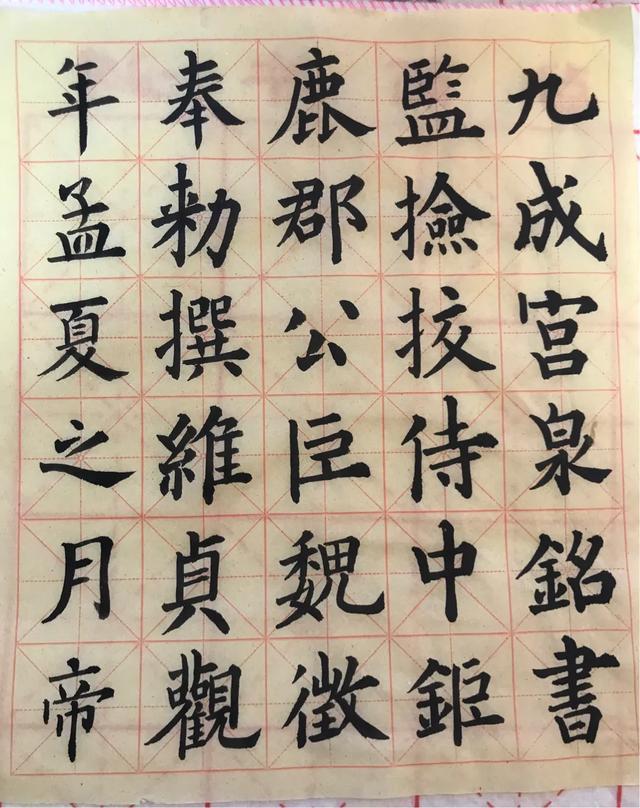 九成宮泉銘書
監撿挍侍中鉅
鹿郡公臣魏徵
奉勑撰維貞觀
年孟夏之月帝